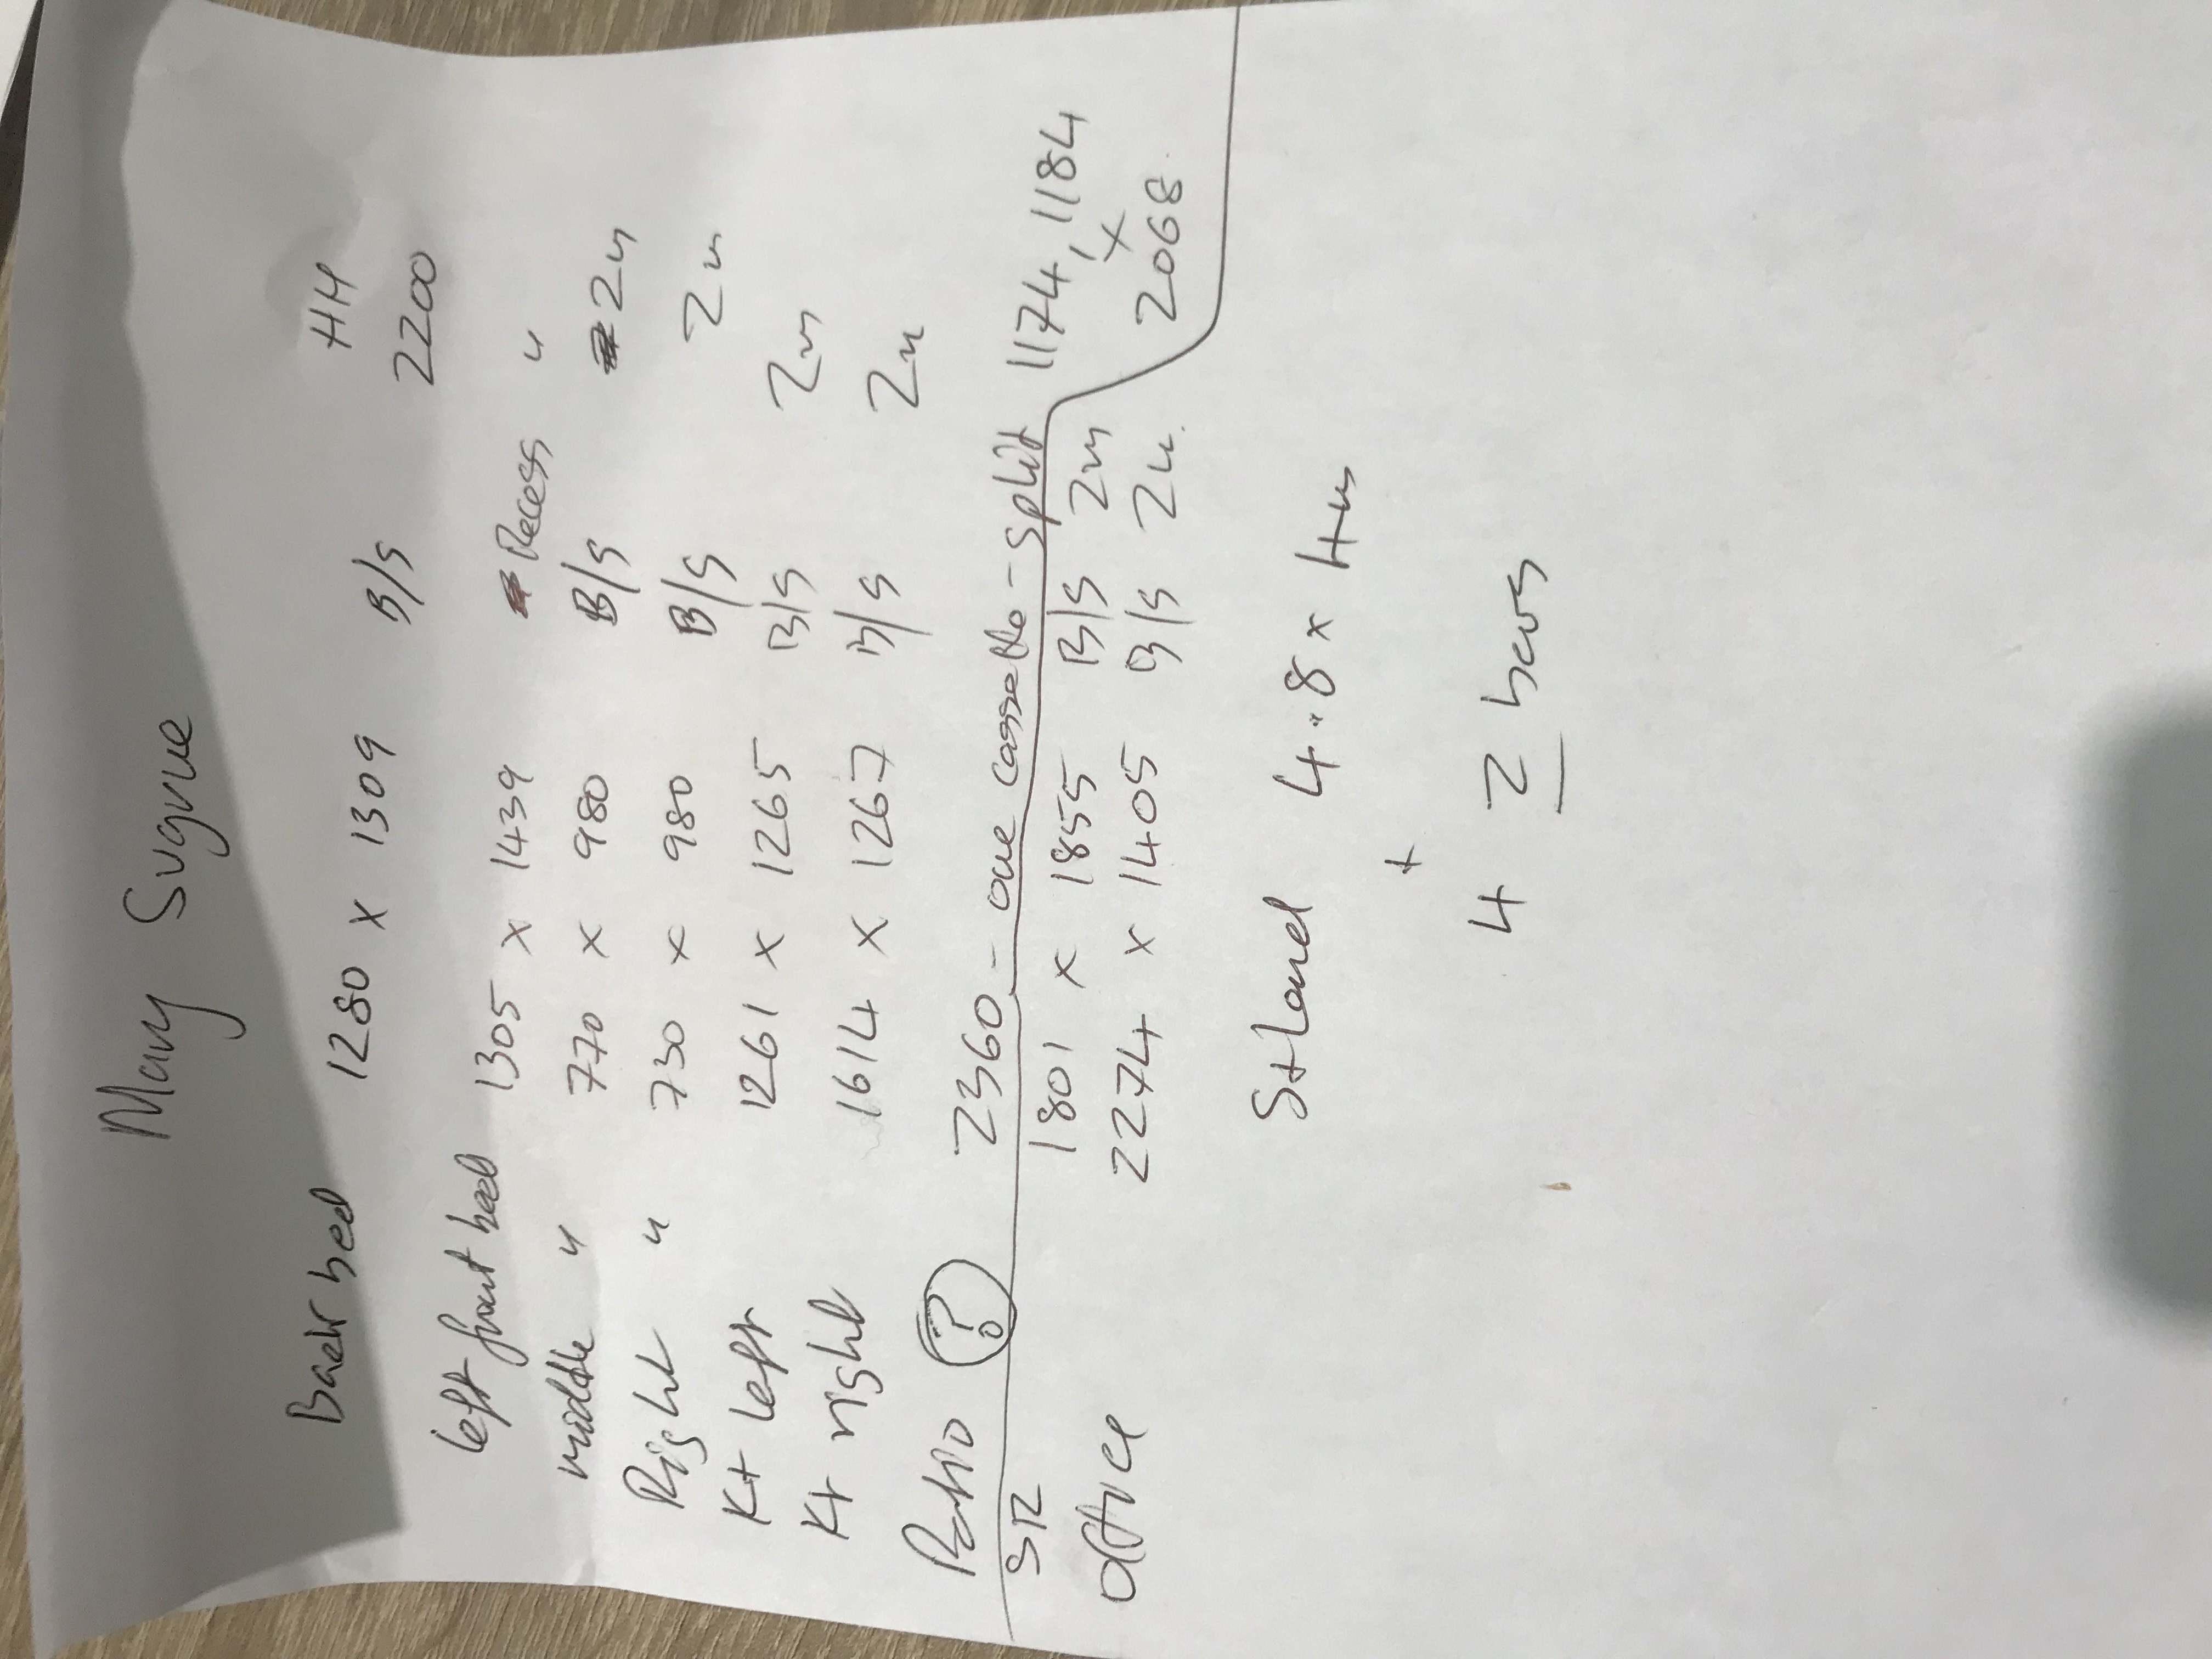 Mary Sugrue
HH
Back bed 1280 x 1309 B/S 2200
left front bed 1305 x 1439 Recess "
middle " 770 x 980 B/S 2m
Right " 730 x 980 B/S 2m
Kt left 1261 x 1265 B/S 2m
Kt right 1614 x 1267 B/S 2m
Patio ? 2360 - one cassette - split 1174, 1184
x
2068
SR 1801 x 1855 B/S 2m
office 2274 x 1405 B/S 2m.
4.8 x 4m
+
4 2